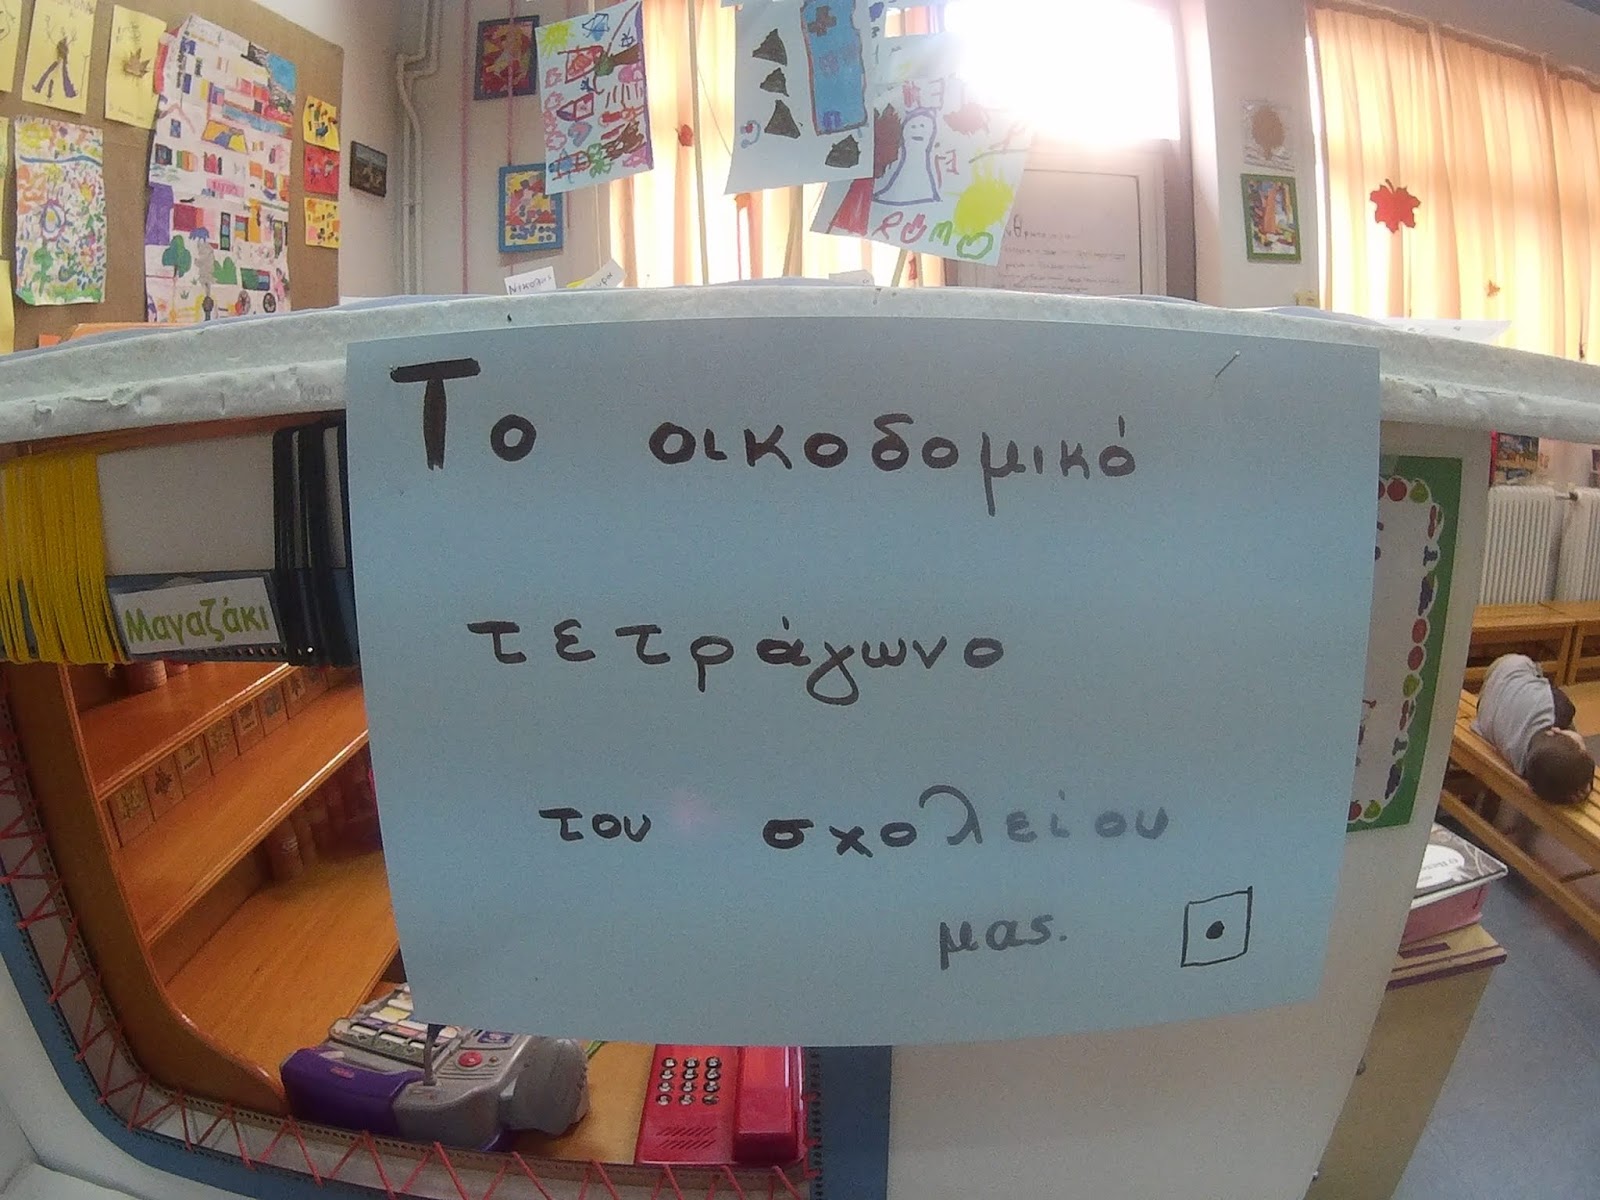 Νικολ
Το οικοδομικό
Μαγαζάκι
τετράγωνο
του σχολείου
μας.